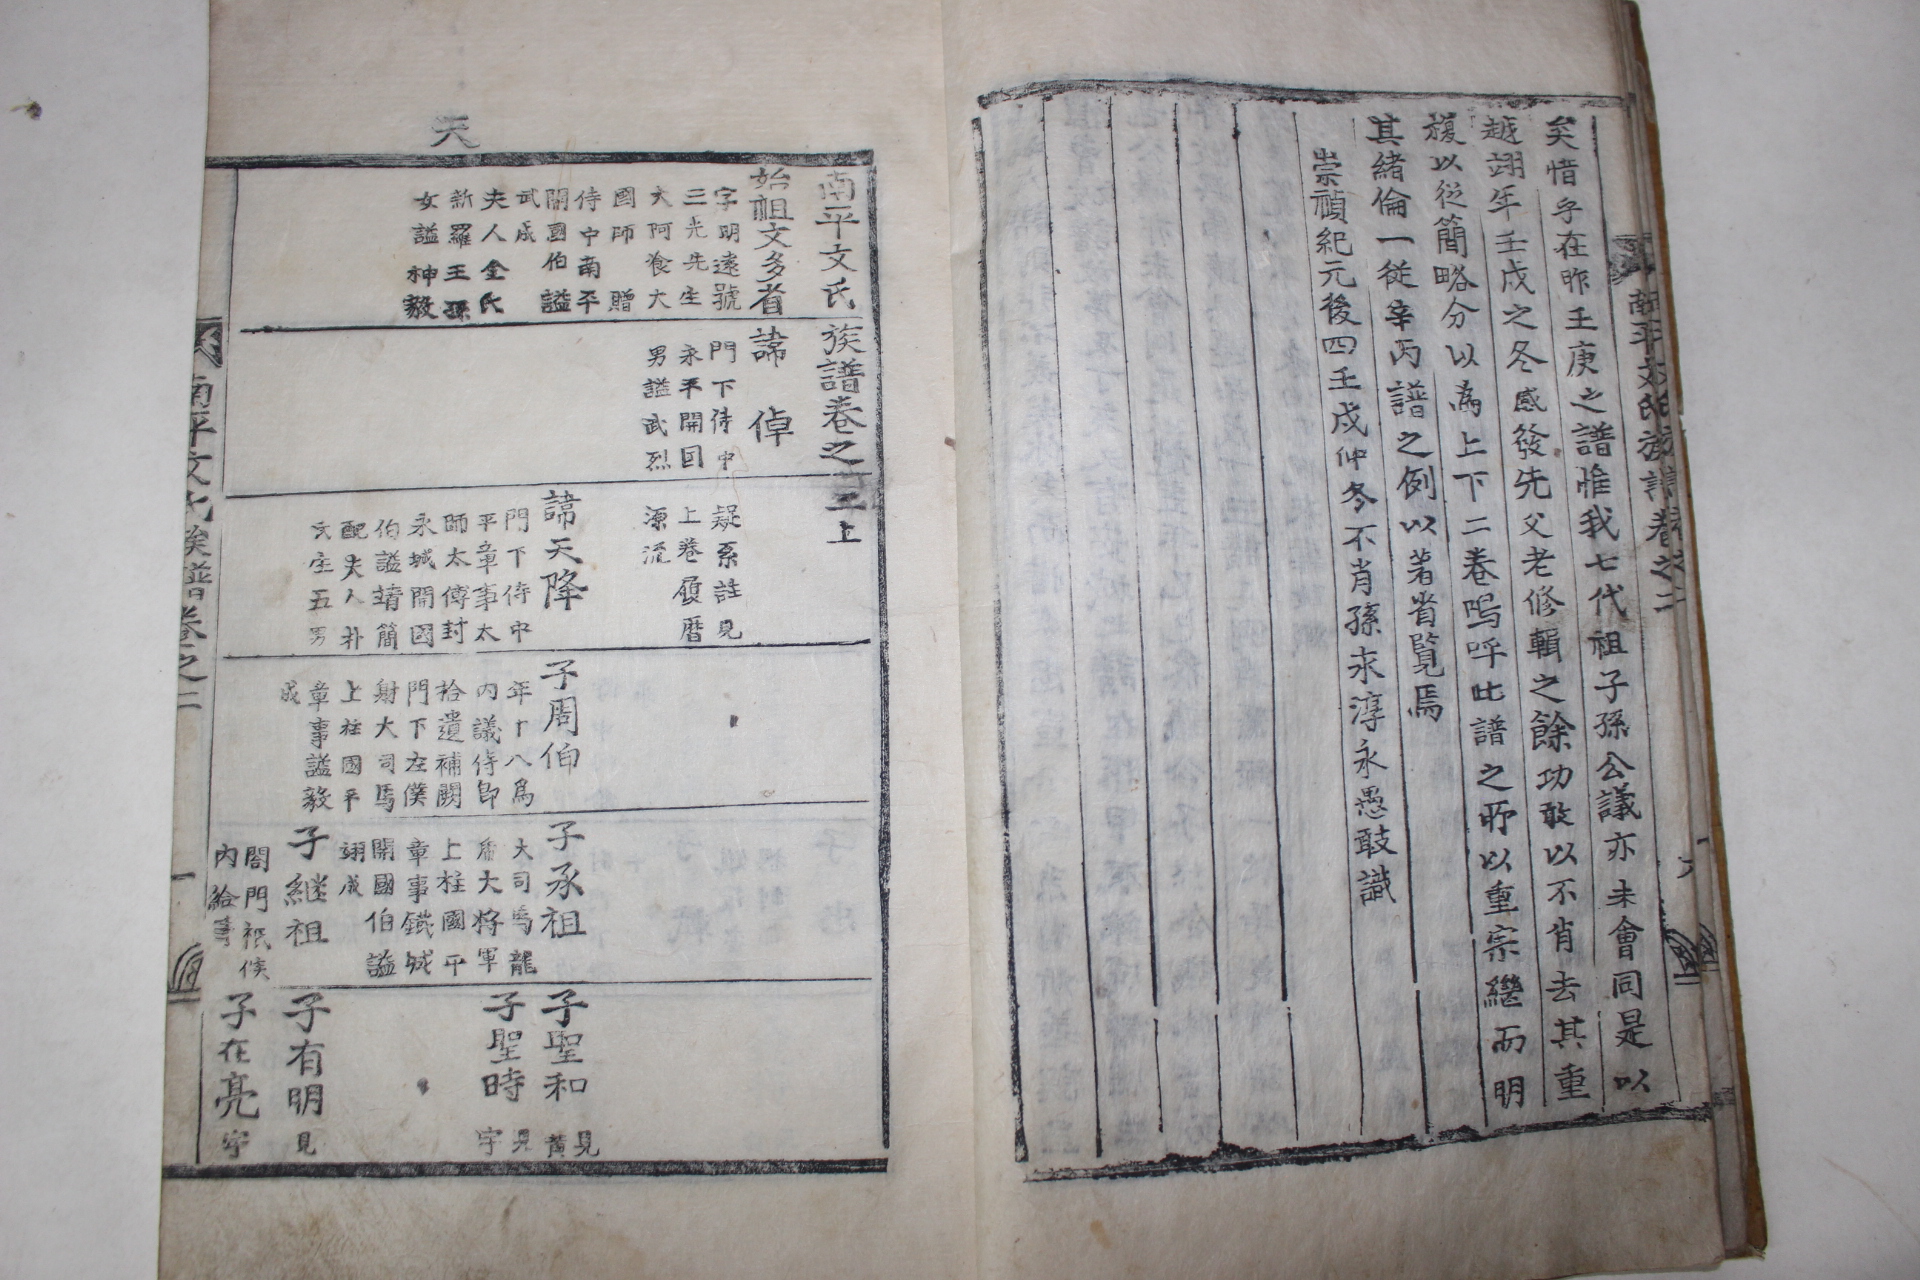 南平文氏族譜卷之二
矣惜乎在昨壬庚之譜惟我七代祖子孫公議亦未會同是以
越翊年壬戌之冬感發先父老修輯之餘功敢以不肖去其重
複以從簡略分以為上下二卷嗚呼此譜之所以重宗繼而明
其緒倫一從辛丙譜之例以著省覧焉
崇禎紀元後四壬戌仲冬不肖孫永淳永愚敢識
天
南平文氏族譜卷之二上
始祖文多省
字明遠號
三光先生
大阿飡大
國師贈
侍中南平
開國伯謚
武成
夫人金氏
新羅王孫
女謚神毅
諱倬
門下侍中
永平開囯
男謚武烈
疑系註見
上卷履曆
源流
諱天降
門下侍中
平章事太
師太傅封
永城開國
伯謚靖簡
配夫人朴
氏生五男
子周伯
年十八爲
內議侍郎
拾遺補闕
門下左僕
射大司馬
上柱國平
章事謚毅
成
子承祖
大司馬龍
虎大將軍
上柱國平
章事鐵城
開國伯謚
翊成
子継祖
閤門祇候
內給事
子聖和 見
子聖時 見
子有明 見
子在亮
南平文氏族譜卷之二
一